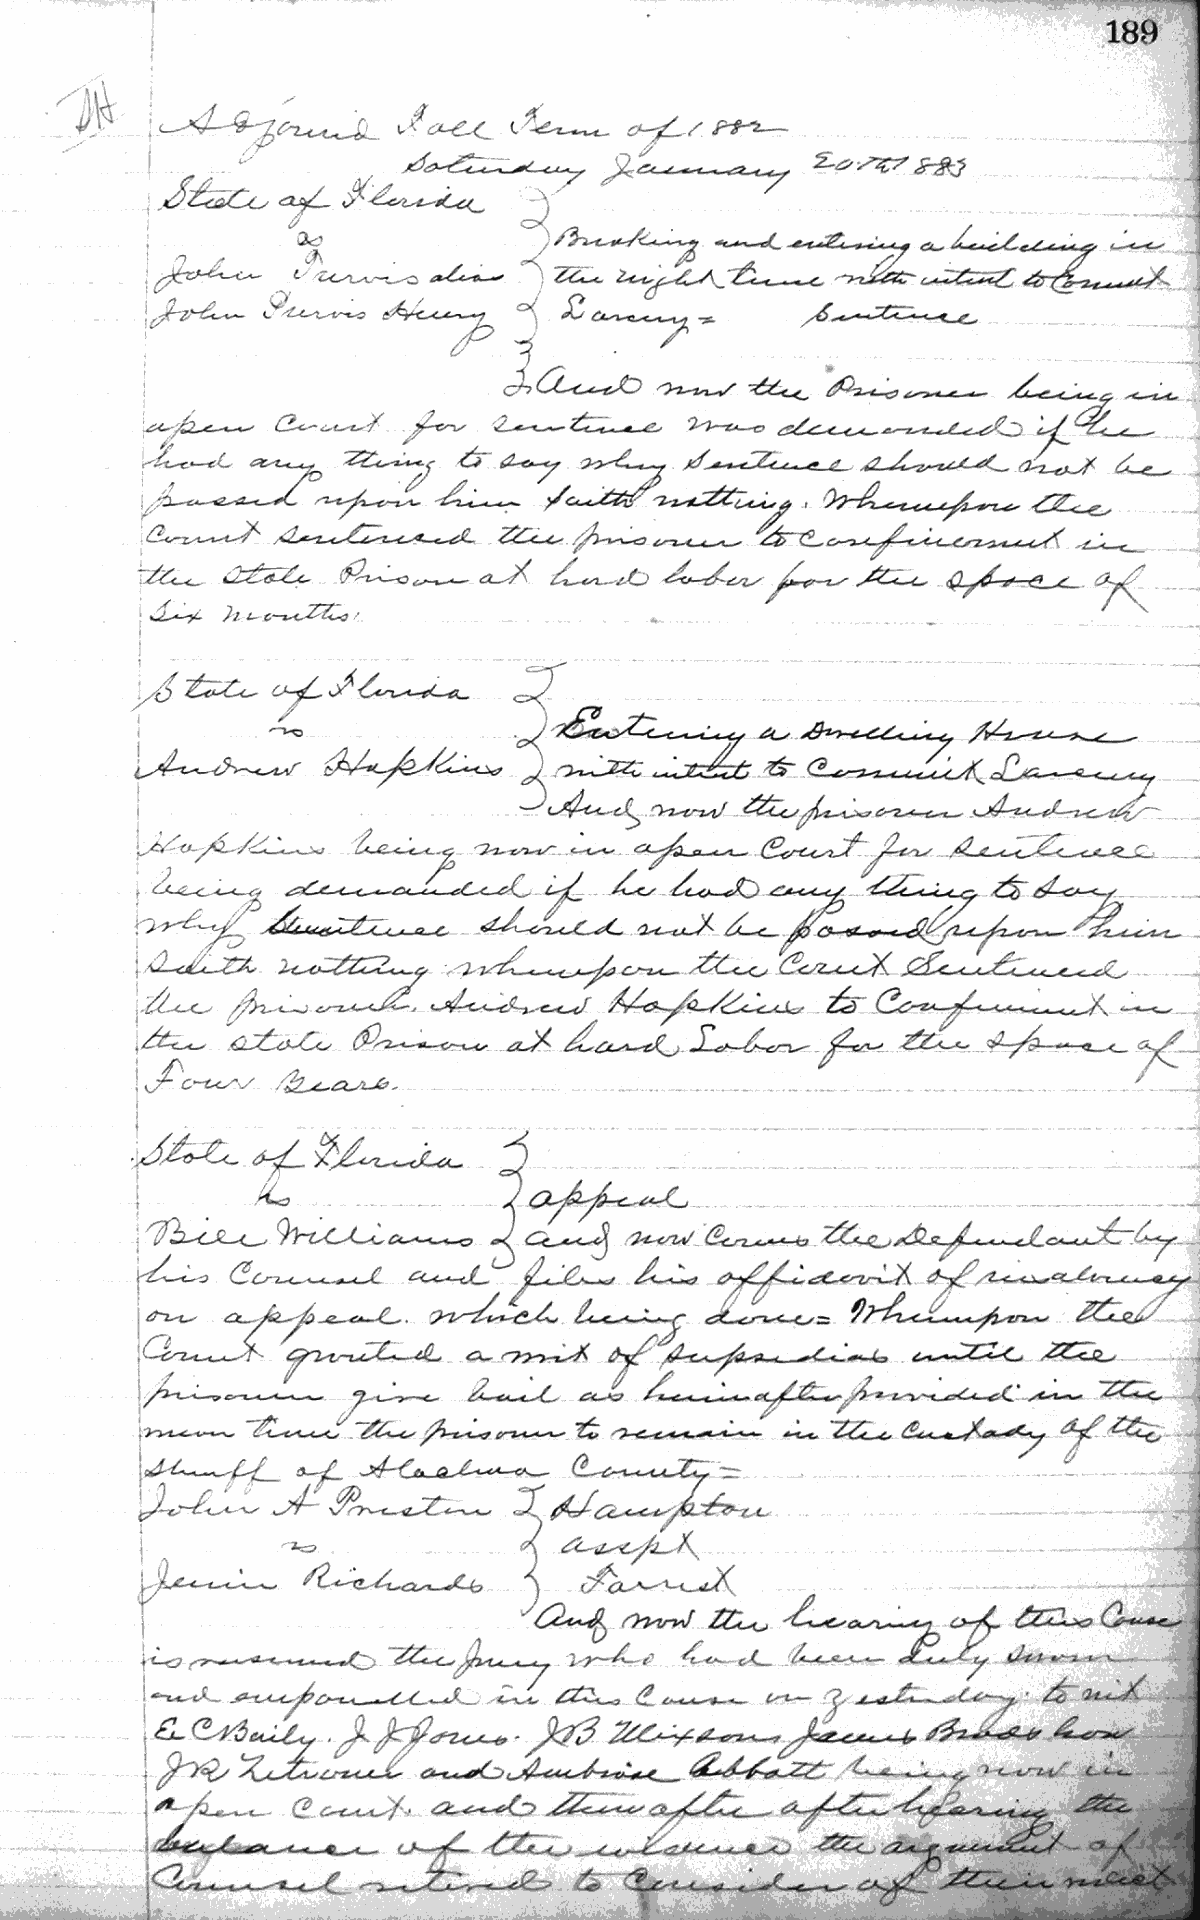 189
DH
Adjourned Fall Term of 1882
Saturday January 20th 1883
State of Florida
vs
Breaking and entering a building in
John Purvis alias
the night time with intent to Commit
John Purvis Henry
Larceny = Sentence
And now the Prisoner being in
open Court for sentence was demanded if he
had any thing to say why Sentence should not be
passed upon him saith nothing. Whereupon the
Court sentenced the prisoner to confinement in
the State Prison at hard labor for the space of
Six months.
State of Florida
vs
Entering a Dwelling House
Andrew Hopkins
with intent to Commit Larceny
And now the prisoner Andrew
Hopkins being now in open Court for Sentence
being demanded if he had any thing to say
why Sentence should not be passed upon him
saith nothing whereupon the Court Sentenced
the prisoner. Andrew Hopkins to Confinement in
the state Prison at hard Labor for the space of
Four Years.
State of Florida
vs
appeal
Bill Williams
and now Comes the Defendant by
his Counsel and files his affidavit of insolvency
on appeal. which being done = Whereupon the
Court granted a writ of supsedias until the
prisoner give bail as hereinafter provided in the
mean time the prisoner to remain in the Custady of the
Sheriff of Alachua County =
John A Preston
Hampton
vs
asspt
Jennie Richards
Forrest
And now the hearing of this Cause
is resumed the Jury who had been duly sworn
and empanelled in this Cause on yesterday. to wit
E C Baily. J J Jones. J B Mixson James Bradshaw
J R Zetrouer and Ambrose Abbott being now in
open Court. and thereafter after hearing the
balance of the evidence the argument of
Counsel retired to Consider of their verdict